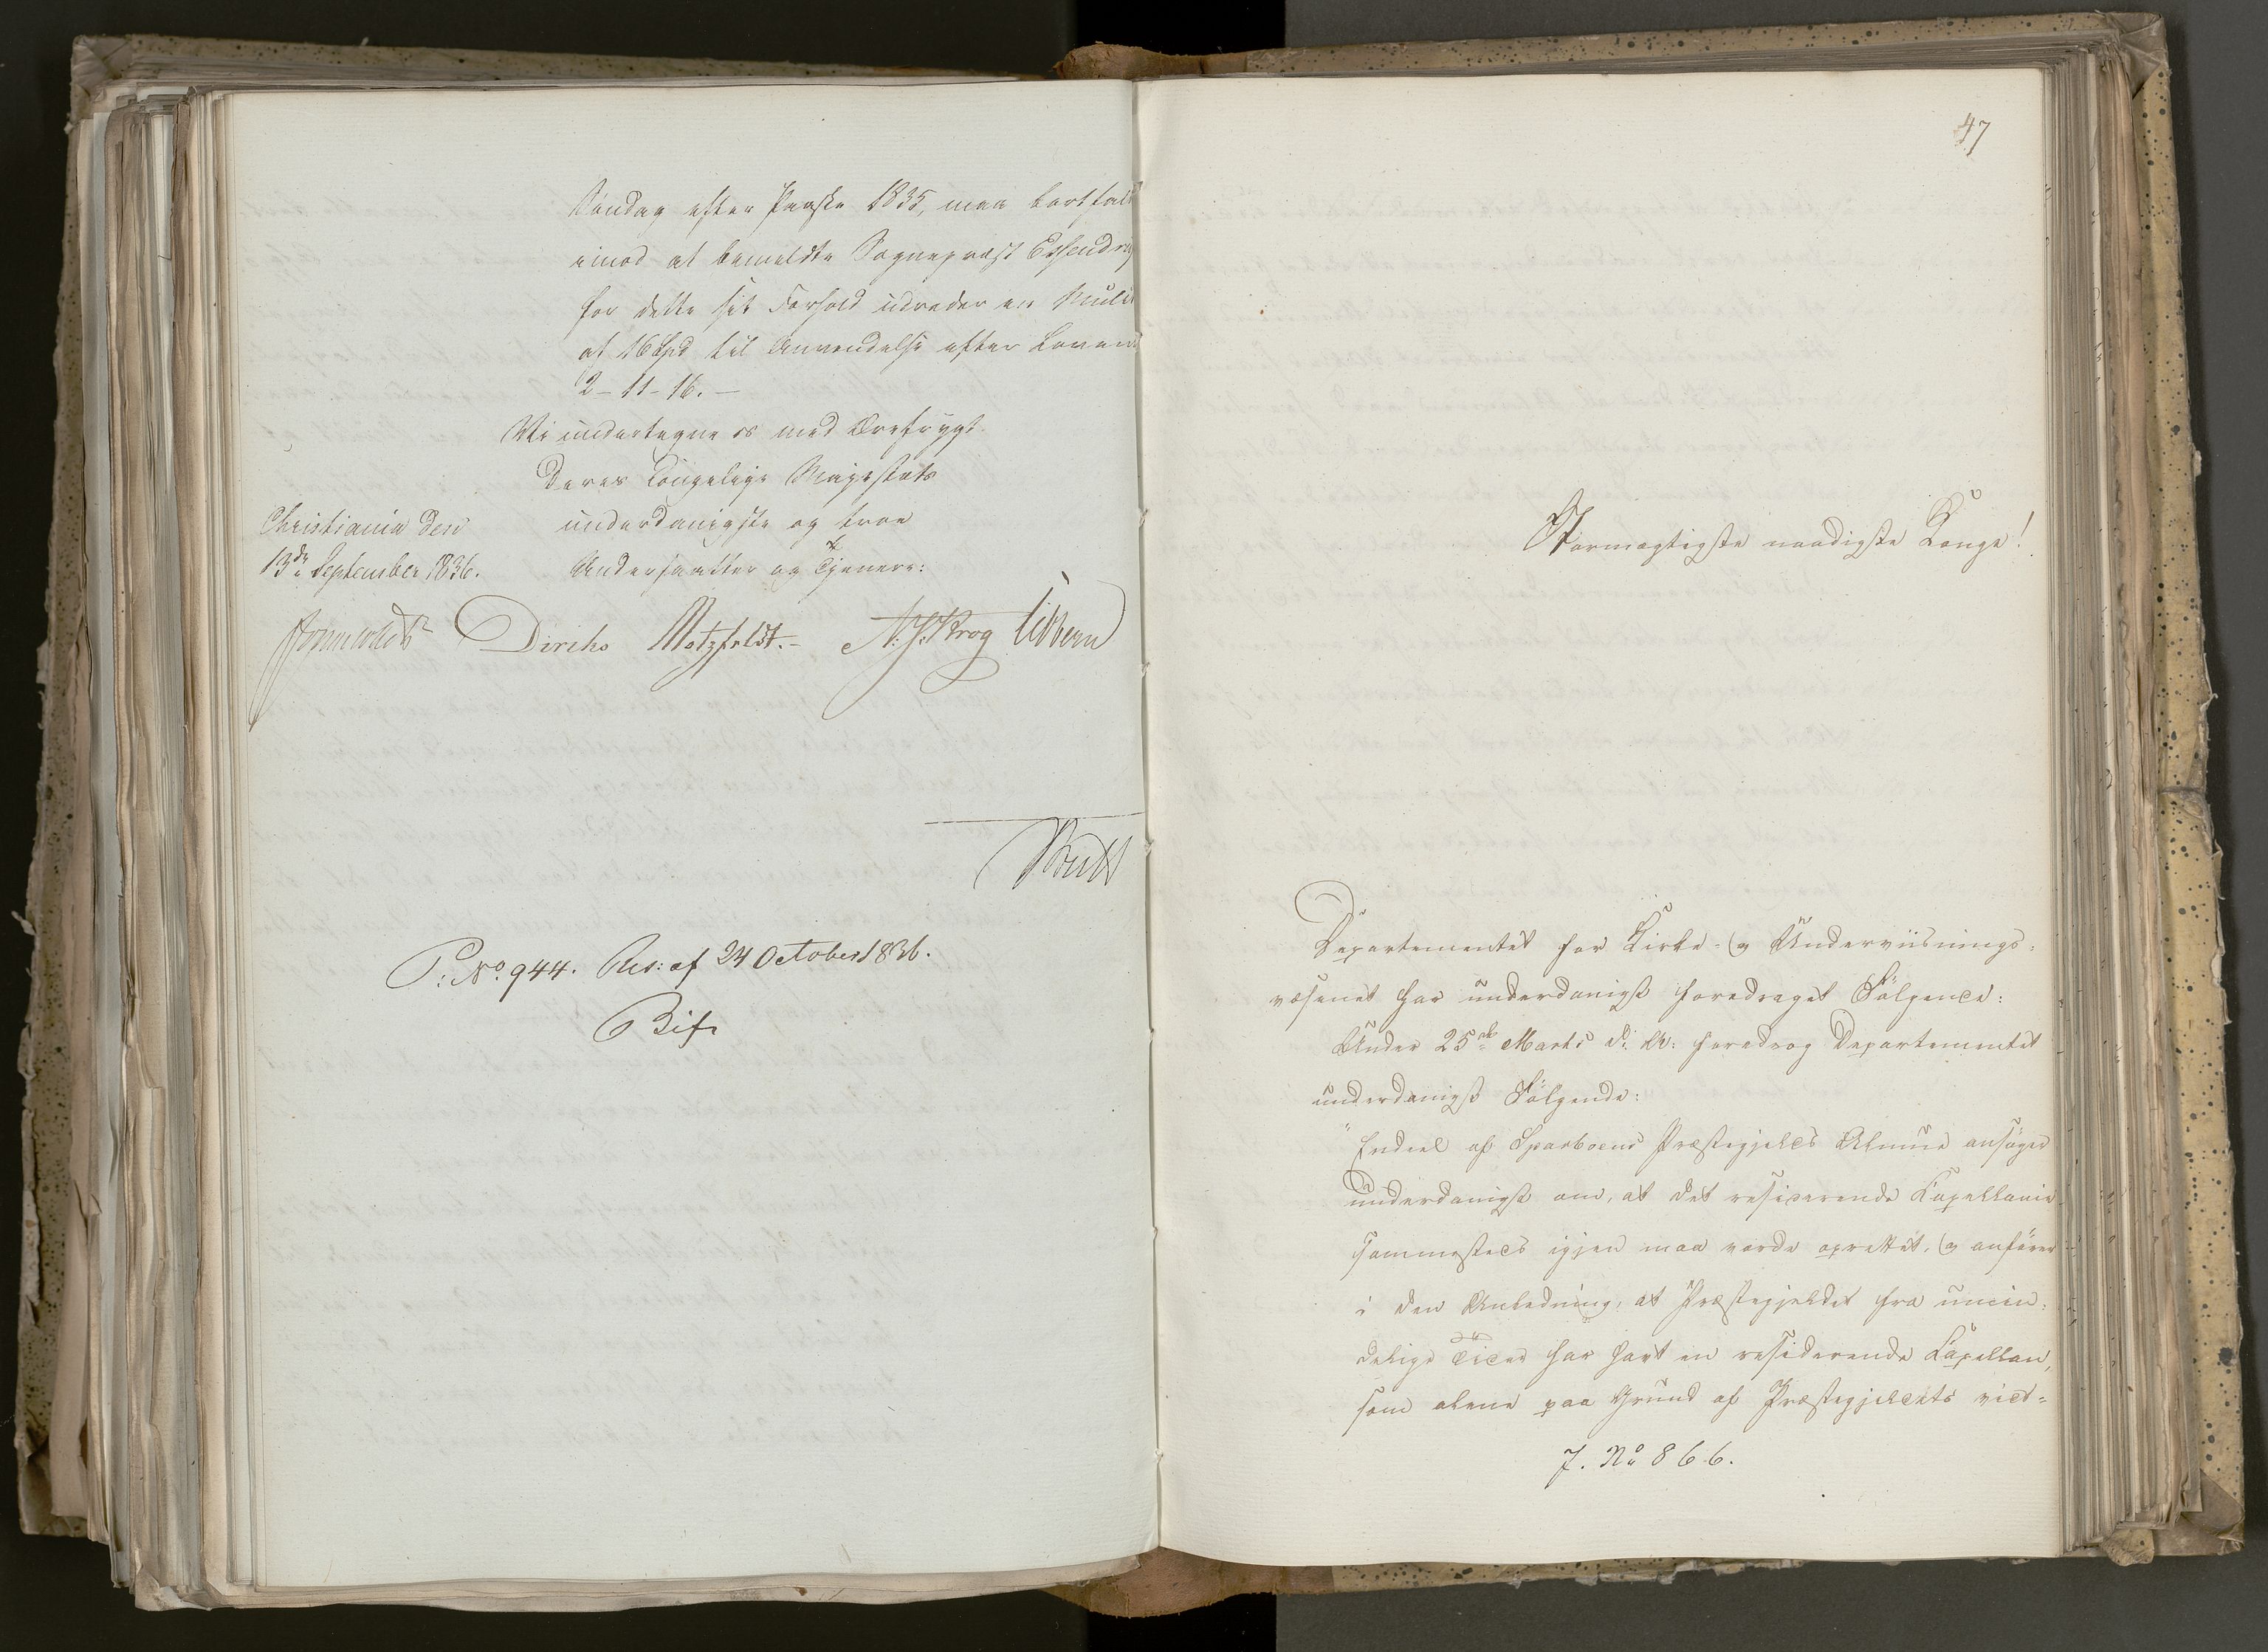 Søndag efter Paaske 1835, maa bortfal
imod at bemeldte Sognepræst Essendro
for dette sit Forhold udreder en Mulc
af 16 Spd til Anvendelse efter Lovens
2-11-16. —
Vi undertegne os med Ærefrygt
Deres Kongelige Majestæts
Christiania den
underdanigste og troe
13de September 1836.
Undersaatter og Tjenere:
Diriks Motzfeldt.- N. J. Krog Sibbern
P: No. 944. Res: af 24 October 1836.
Bif.
47
Stormægtigste naadigste Konge!
Departementet for Kirke- og Underviisnings-
væsenet har underdanigst foredraget Følgende:
Under 25de Marts d. A. foredrog Departementet
underdanigst Følgende:
"Endeel af Sparboens Præstegjelds Almue ansøger
underdanigst om, at det residerende Kapellanie
sammesteds igjen maa vorde oprettet, og anfører
i den Anledning, at Præstegjeldet fra umin-
delige Tider har havt en residerende Kapellan,
som alene paa Grund af Præstegjeldets vidt-
J. No 866.